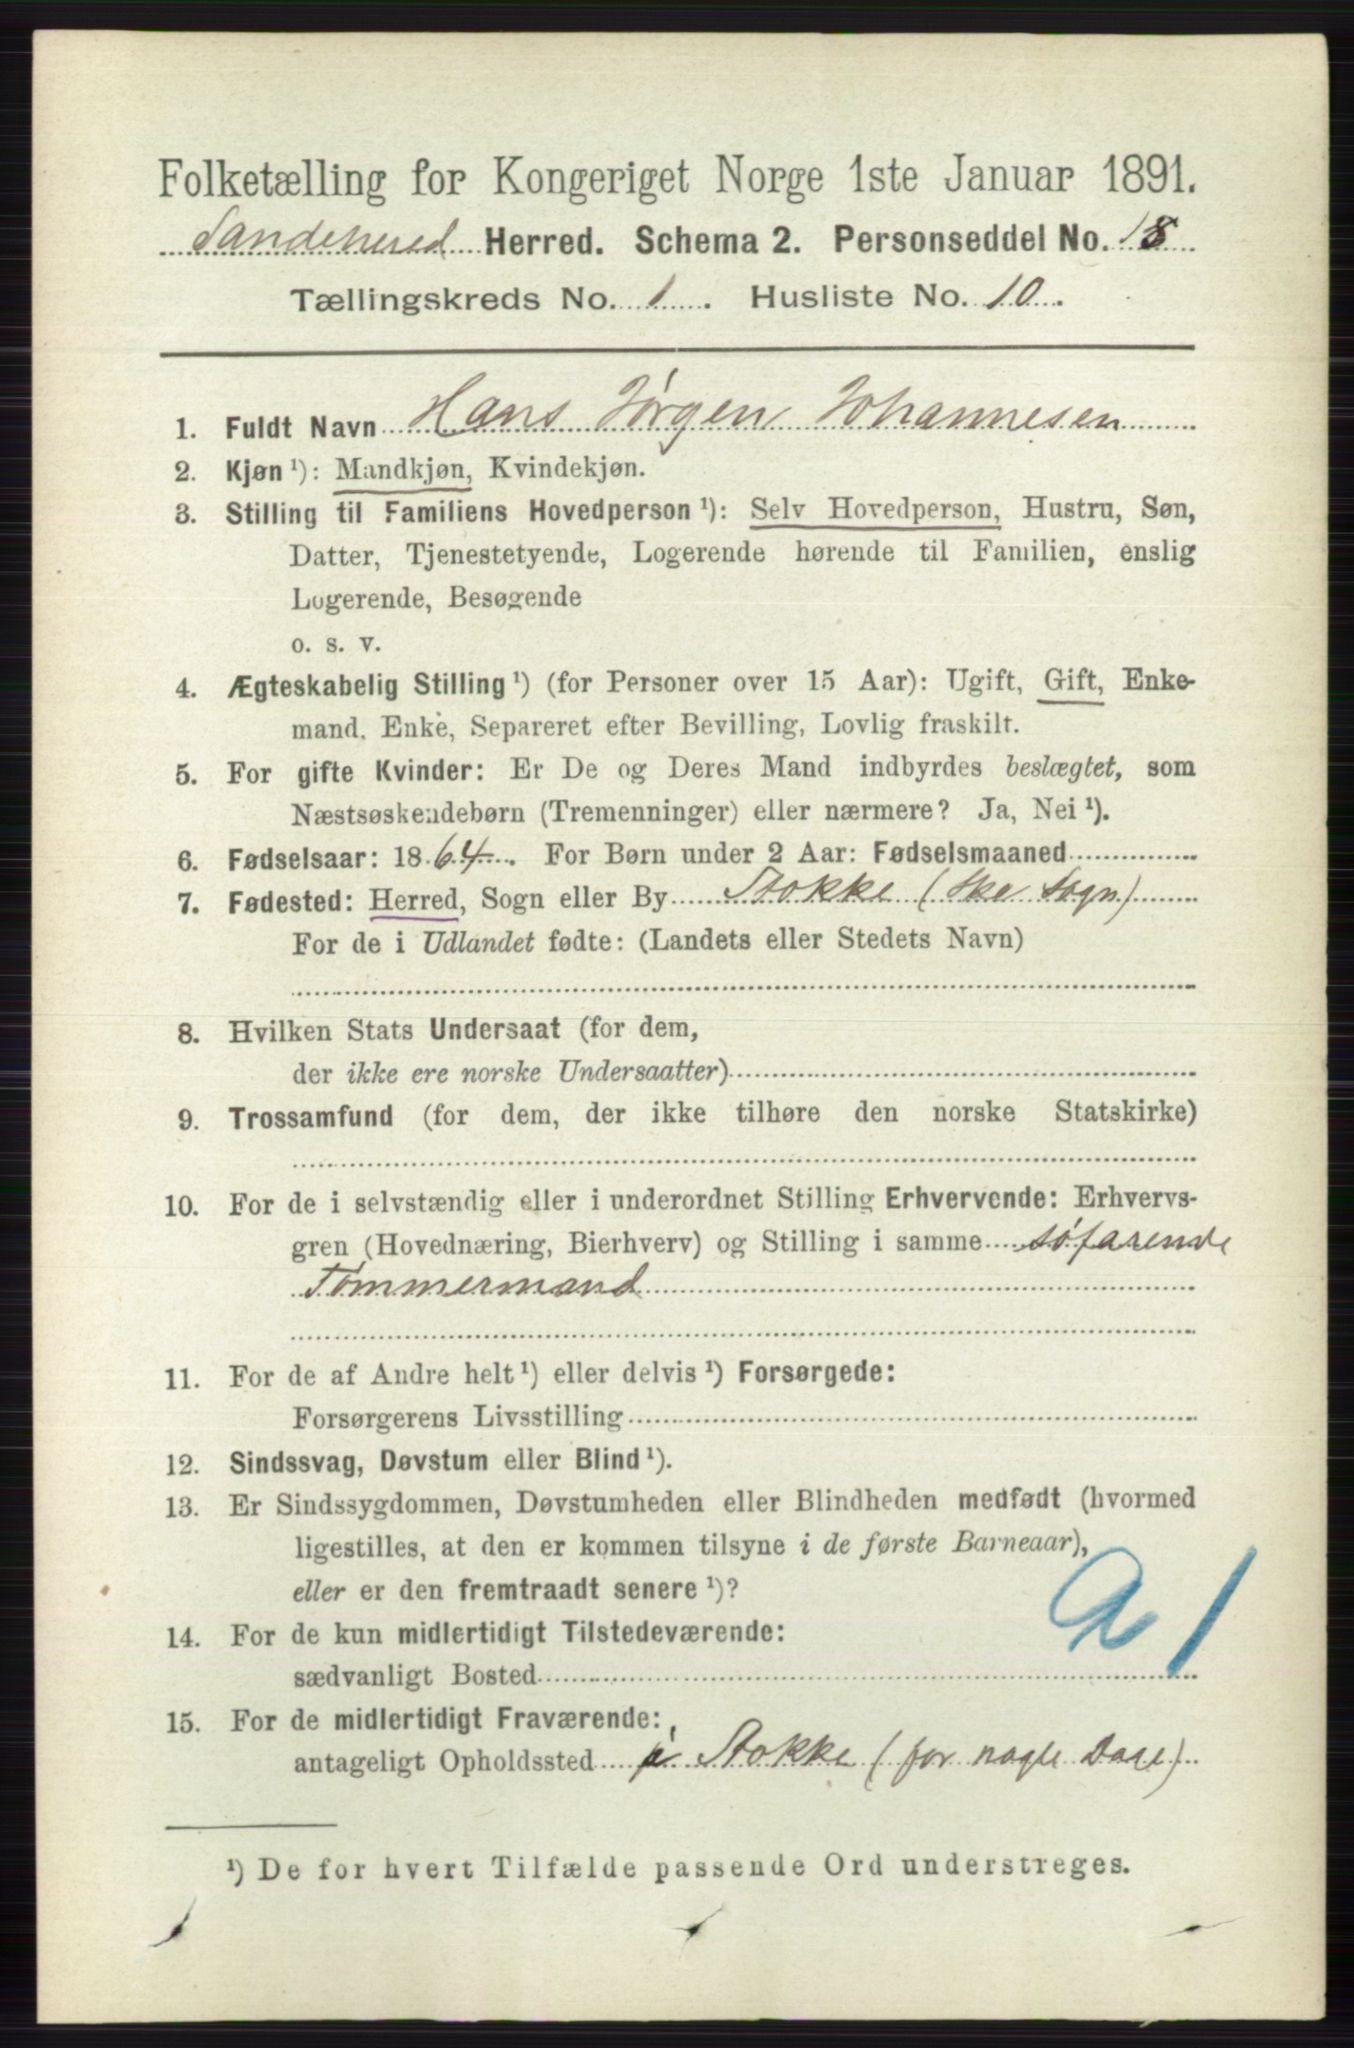 Folketælling for Kongeriget Norge 1ste Januar 1891.
Sandeherred Herred. Schema 2. Personseddel No. 18
Tællingskreds No. 1. Husliste No. 10.
1. Fuldt Navn Hans Jørgen Johannesen
2. Kjøn ¹): Mandkjøn, Kvindekjøn.
3. Stilling til Familiens Hovedperson ¹): Selv Hovedperson, Hustru, Søn,
Datter, Tjenestetyende, Logerende hørende til Familien, enslig
Logerende, Besøgende
o. s. v.
4. Ægteskabelig Stilling ¹) (for Personer over 15 Aar): Ugift, Gift, Enke-
mand, Enke, Separeret efter Bevilling, Lovlig fraskilt.
5. For gifte Kvinder: Er De og Deres Mand indbyrdes beslægtet, som
Næstsøskendebørn (Tremenninger) eller nærmere? Ja, Nei ¹).
6. Fødselsaar: 1864. For Børn under 2 Aar: Fødselsmaaned
7. Fødested: Herred, Sogn eller By Stokke (Ske Sogn)
For de i Udlandet fødte: (Landets eller Stedets Navn)
8. Hvilken Stats Undersaat (for dem,
der ikke ere norske Undersaatter)
9. Trossamfund (for dem, der ikke tilhøre den norske Statskirke)
10. For de i selvstændig eller i underordnet Stilling Erhvervende: Erhvervs-
gren (Hovednæring, Bierhverv) og Stilling i samme søfarende
Tømmermand
11. For de af Andre helt ¹) eller delvis ¹) Forsørgede:
Forsørgerens Livsstilling
12. Sindssvag, Døvstum eller Blind ¹).
13. Er Sindssygdommen, Døvstumheden eller Blindheden medfødt (hvormed
ligestilles, at den er kommen tilsyne i de første Barneaar),
eller er den fremtraadt senere ¹)?
14. For de kun midlertidigt Tilstedeværende:
sædvanligt Bosted
15. For de midlertidigt Fraværende:
antageligt Opholdssted på Stokke (for nogle Dage)
¹) De for hvert Tilfælde passende Ord understreges.